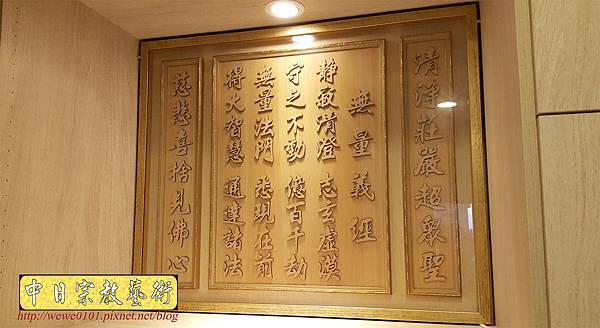 清淨莊嚴超眾聖
無量義經
靜寂清澄 志玄虛漠
守之不動 億百千劫
無量法門 悉現在前
得大智慧 通達諸法
慈悲喜捨見佛心
中日宗教藝術
http://wewe0101.pixnet.net/blog